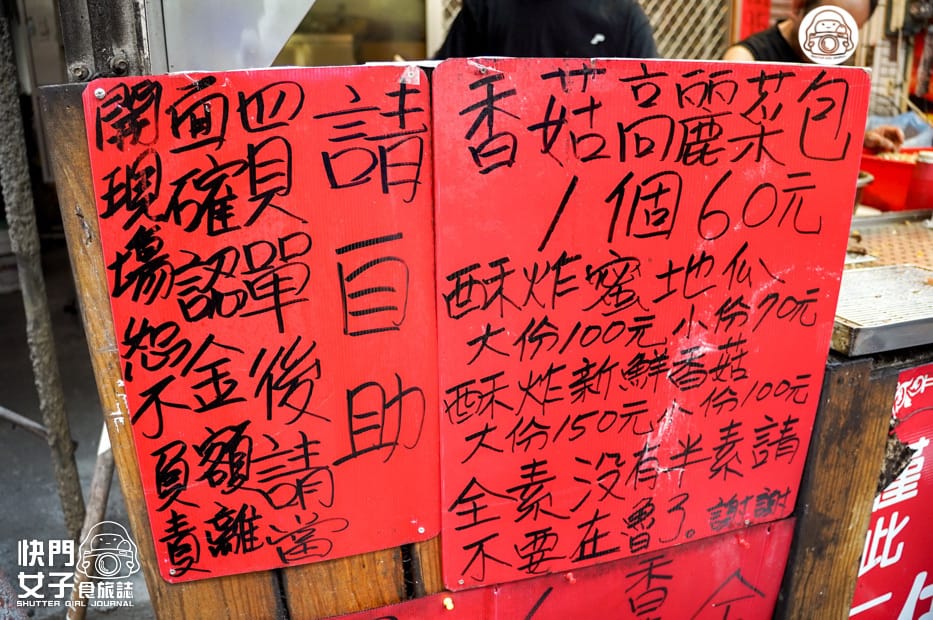 請自助
買單後請當
面確認金額離
開現場恕不負責
香菇高麗菜包
1個60元
酥炸蜜地瓜
大份100元 小份70元
酥炸新鮮香菇
大份150元 小份100元
全素沒有半素請
不要在魯了。謝謝
香
1 全
僅此一
快門
女子食旅誌
SHUTTER GIRL JOURNAL